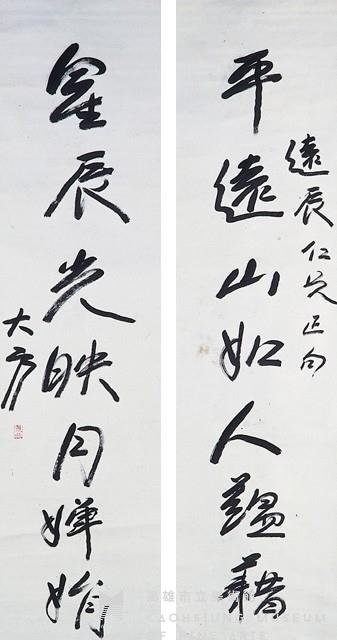 遠辰仁兄正句
平遠山如人蘊藉
星辰光映月嬋娟
大方
高雄市立美術館
KAOHSIUNG MUSEUM
OF FINE ARTS